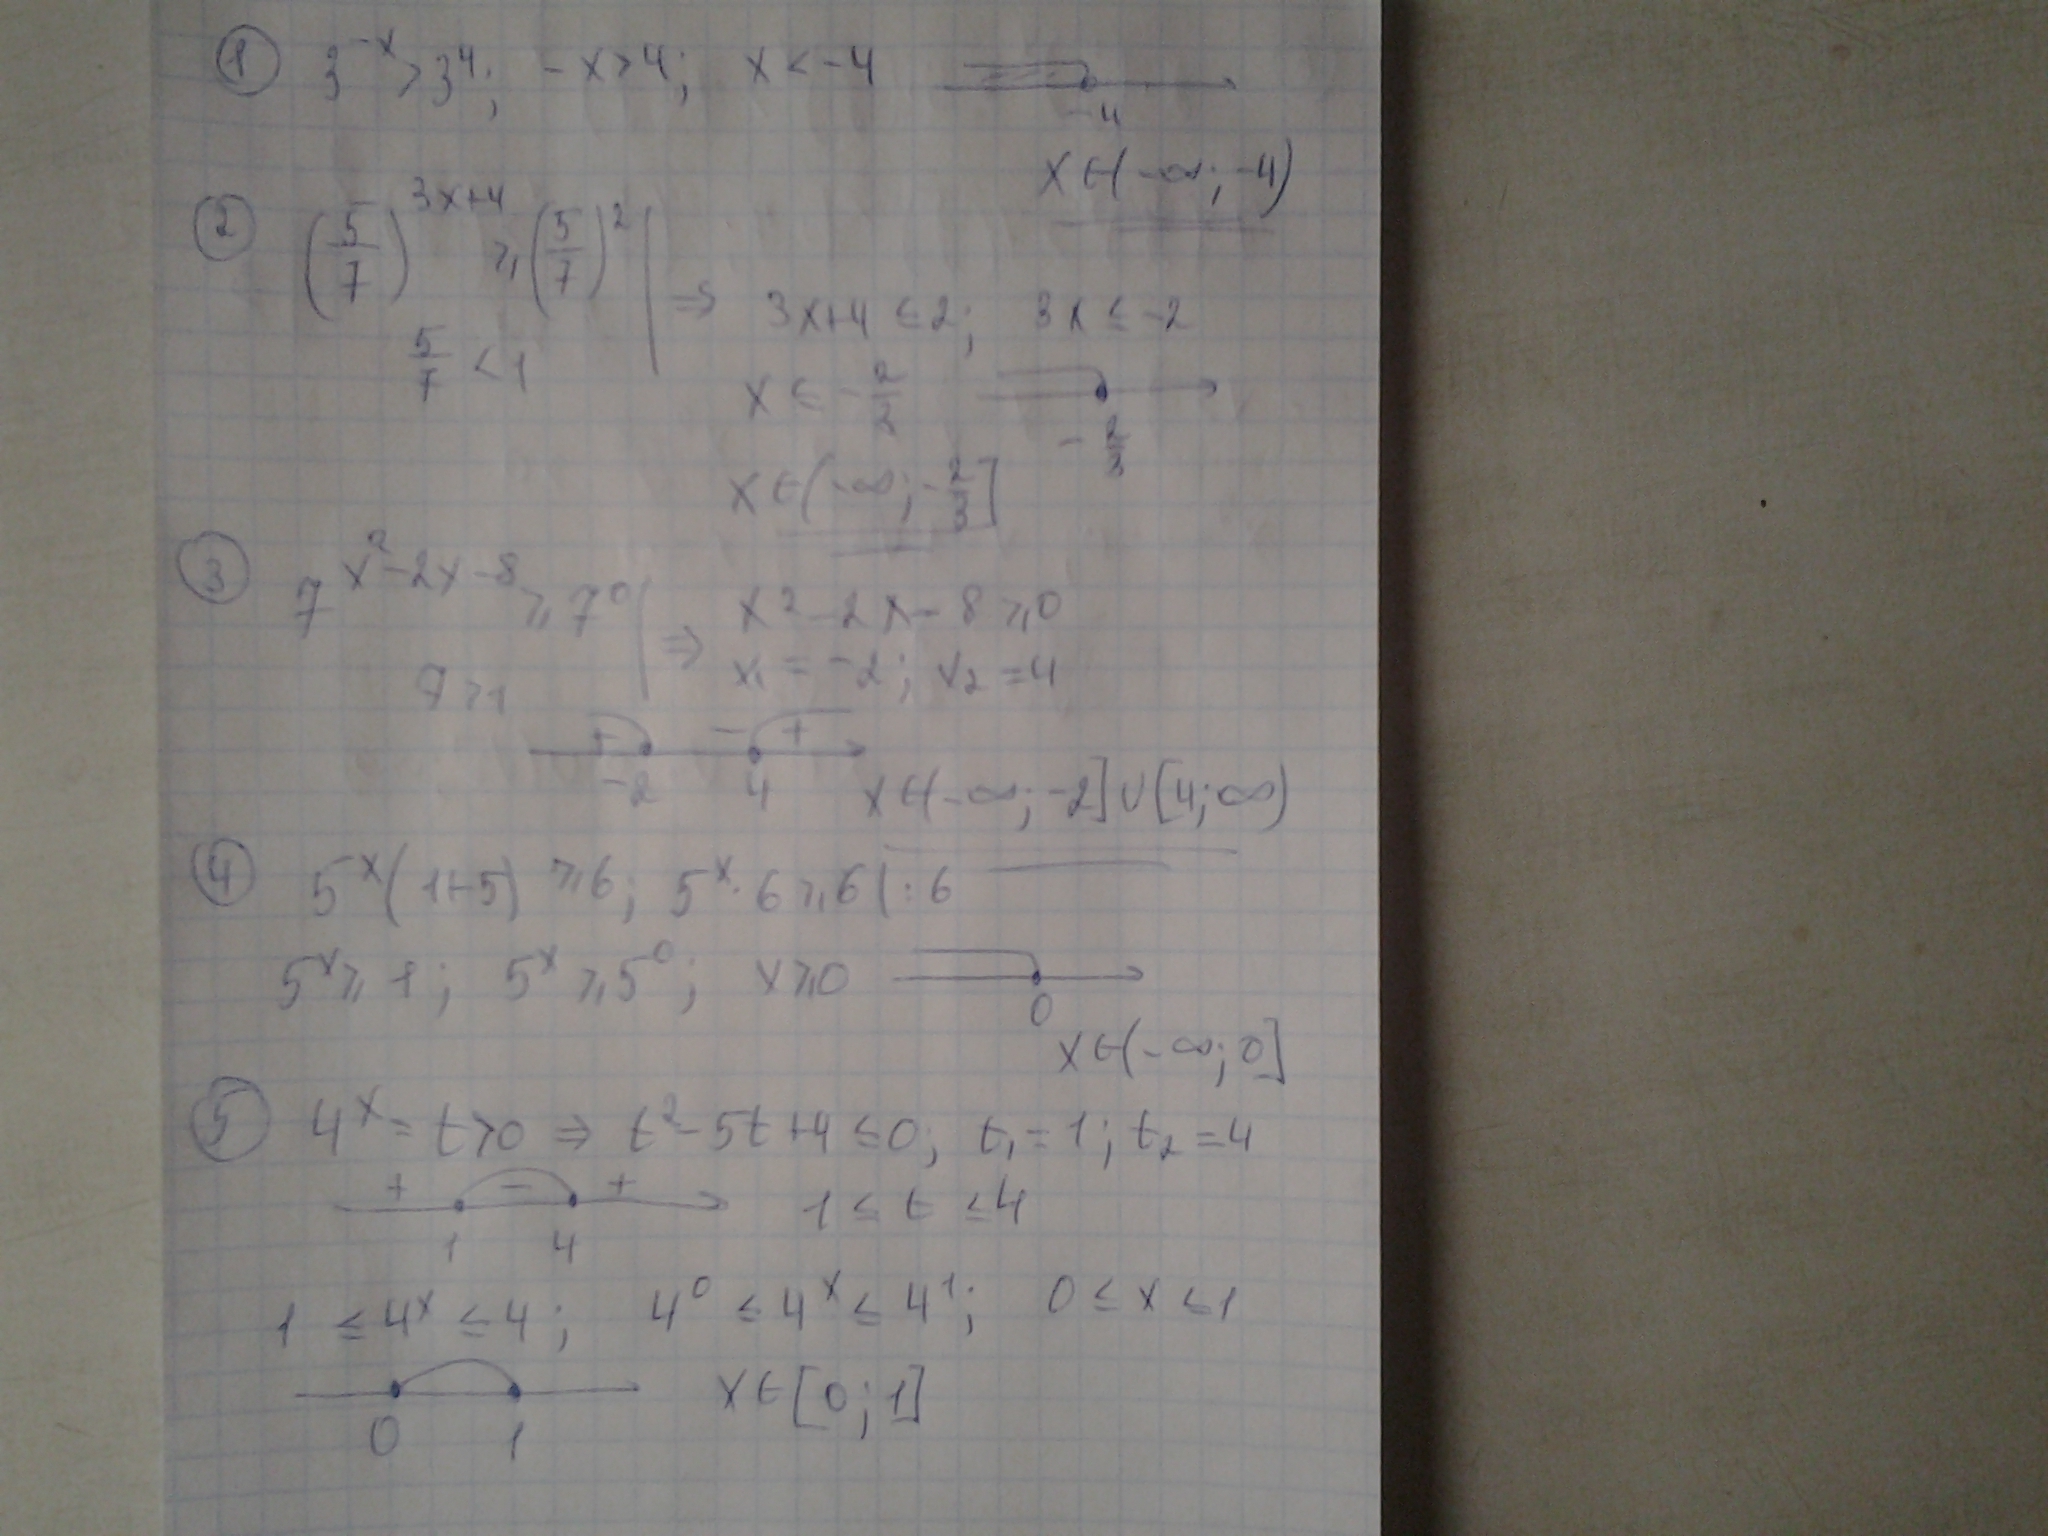 ① 3^{-x} > 3^4; -x > 4; x < -4
-4
x ∈ (-∞; -4)
② (5/7)^{3x+4} ≥ (5/7)^2 | ⇒ 3x+4 ≤ 2; 3x ≤ -2
5/7 < 1
x ≤ -2/2
-2/3
x ∈ (-∞; -2/3]
③ 7^{x^2-2x-8} ≥ 7^0 | ⇒ x^2 - 2x - 8 ≥ 0
7 > 1 x_1 = -2; x_2 = 4
+ - +
-2 4 x ∈ (-∞; -2] ∪ [4; ∞)
④ 5^x (1+5) ≥ 6; 5^x · 6 ≥ 6 | : 6
5^x ≥ 1; 5^x ≥ 5^0; x ≥ 0
0
x ∈ (-∞; 0]
⑤ 4^x = t > 0 ⇒ t^2 - 5t + 4 ≤ 0; t_1 = 1; t_2 = 4
+ - + 1 ≤ t ≤ 4
1 4
1 ≤ 4^x ≤ 4; 4^0 ≤ 4^x ≤ 4^1; 0 ≤ x ≤ 1
x ∈ [0; 1]
0 1